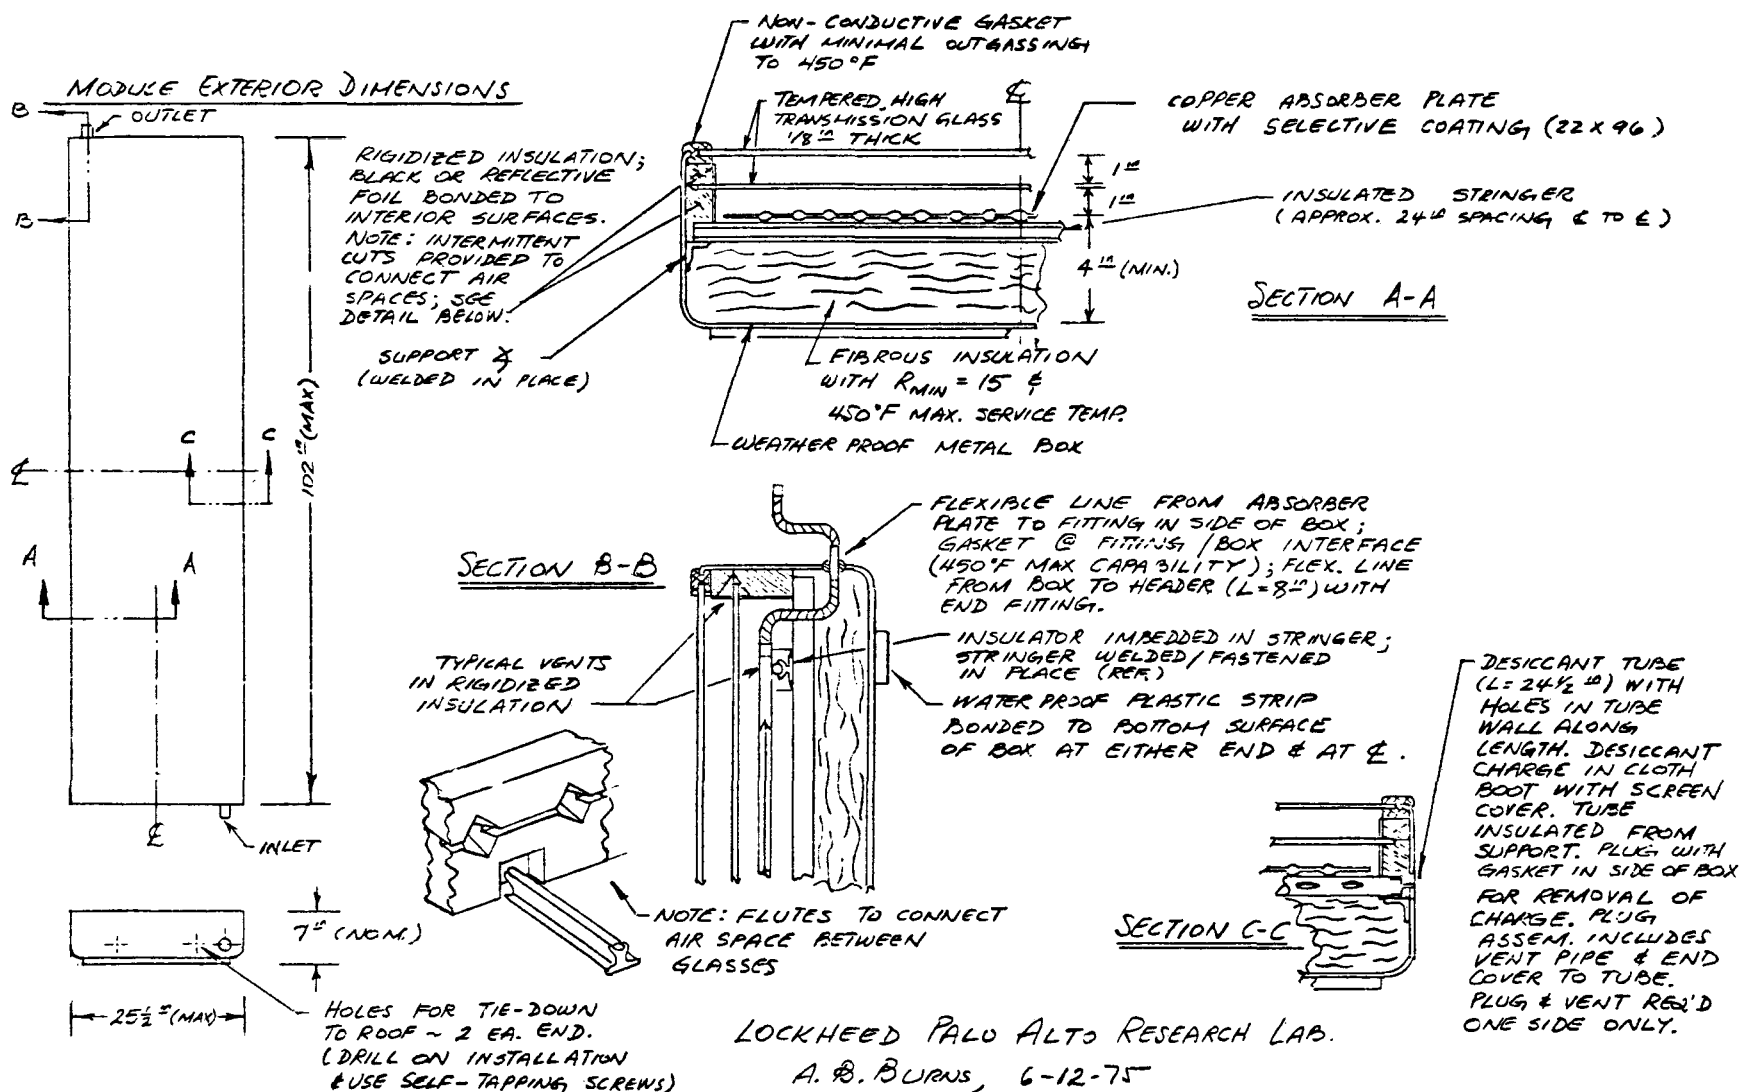 MODULE EXTERIOR DIMENSIONS
B
OUTLET
B
102 in (MAX)
C
C
℄
A
A
℄
INLET
7 in (NOM.)
25½ in (MAX)
HOLES FOR TIE-DOWN
TO ROOF ~ 2 EA. END.
(DRILL ON INSTALLATION
& USE SELF-TAPPING SCREWS)
NON-CONDUCTIVE GASKET
WITH MINIMAL OUTGASSING
TO 450°F
TEMPERED, HIGH
TRANSMISSION GLASS
1/8 in THICK
℄
COPPER ABSORBER PLATE
WITH SELECTIVE COATING (22 X 96)
1 in
1 in
INSULATED STRINGER
(APPROX. 24 in SPACING ℄ TO ℄)
4 in (MIN.)
SECTION A-A
RIGIDIZED INSULATION;
BLACK OR REFLECTIVE
FOIL BONDED TO
INTERIOR SURFACES.
NOTE: INTERMITTENT
CUTS PROVIDED TO
CONNECT AIR
SPACES; SEE
DETAIL BELOW.
SUPPORT ∡
(WELDED IN PLACE)
FIBROUS INSULATION
WITH RMIN = 15 &
450°F MAX. SERVICE TEMP.
WEATHER PROOF METAL BOX
SECTION B-B
FLEXIBLE LINE FROM ABSORBER
PLATE TO FITTING IN SIDE OF BOX;
GASKET @ FITTING / BOX INTERFACE
(450°F MAX CAPABILITY); FLEX. LINE
FROM BOX TO HEADER (L=8 in) WITH
END FITTING.
INSULATOR IMBEDDED IN STRINGER;
STRINGER WELDED/FASTENED
IN PLACE (REF.)
WATER PROOF PLASTIC STRIP
BONDED TO BOTTOM SURFACE
OF BOX AT EITHER END & AT ℄.
TYPICAL VENTS
IN RIGIDIZED
INSULATION
NOTE: FLUTES TO CONNECT
AIR SPACE BETWEEN
GLASSES
SECTION C-C
DESICCANT TUBE
(L= 24½ in) WITH
HOLES IN TUBE
WALL ALONG
LENGTH. DESICCANT
CHARGE IN CLOTH
BOOT WITH SCREEN
COVER. TUBE
INSULATED FROM
SUPPORT. PLUG WITH
GASKET IN SIDE OF BOX
FOR REMOVAL OF
CHARGE. PLUG
ASSEM. INCLUDES
VENT PIPE & END
COVER TO TUBE.
PLUG & VENT REQ'D
ONE SIDE ONLY.
LOCKHEED PALO ALTO RESEARCH LAB.
A. B. BURNS, 6-12-75